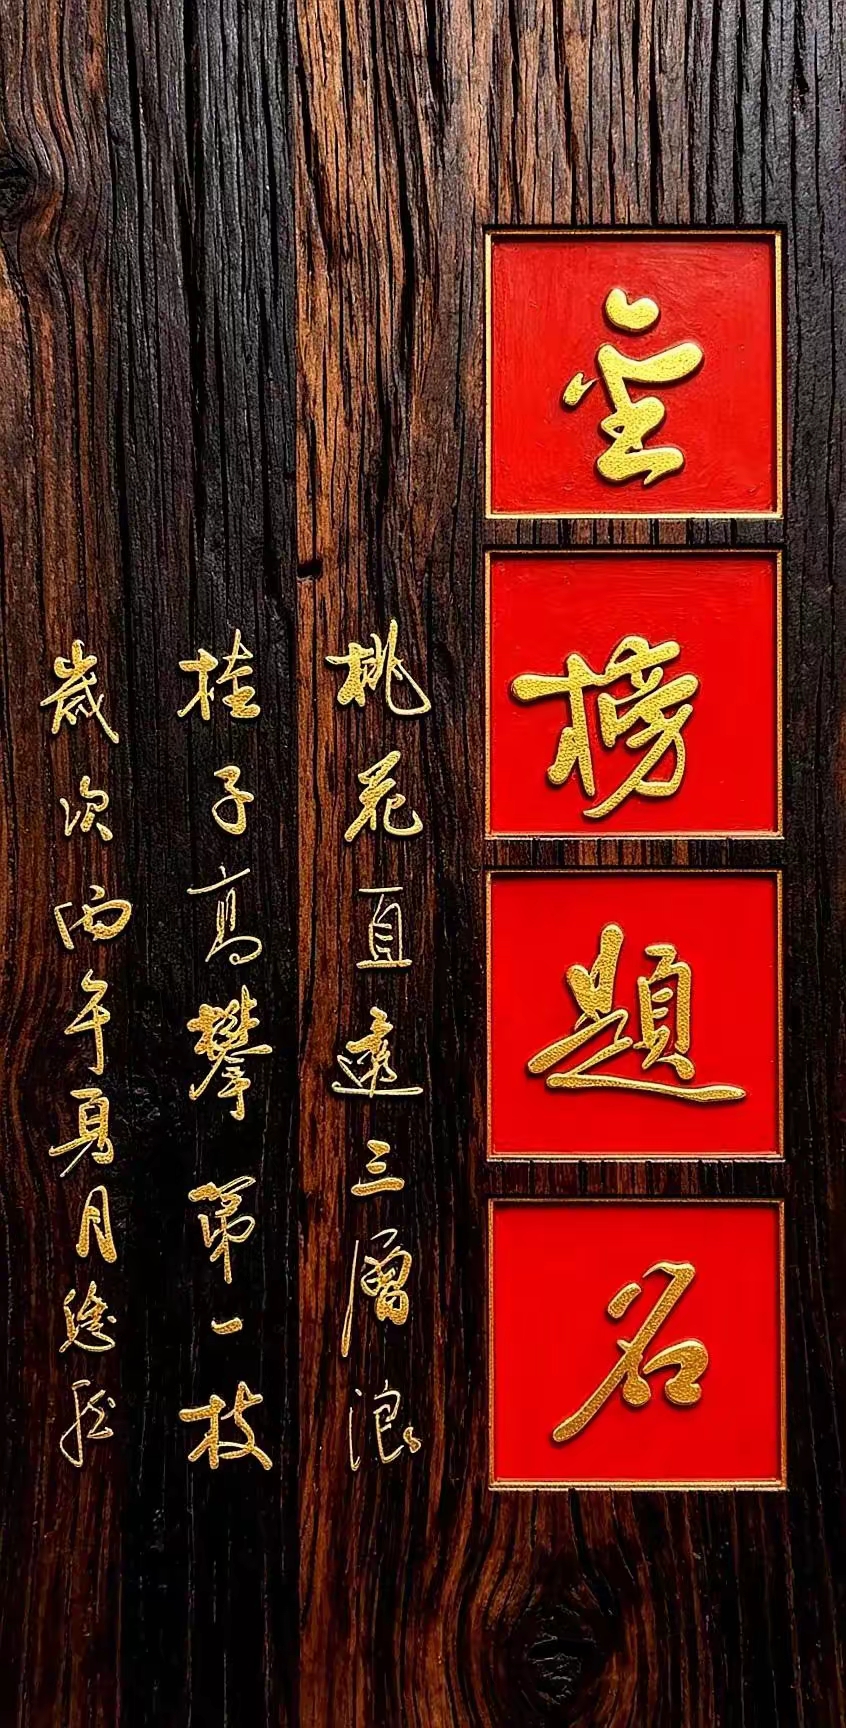 金榜題名
桃花直透三層浪
桂子高攀第一枝
歲次丙午夏月